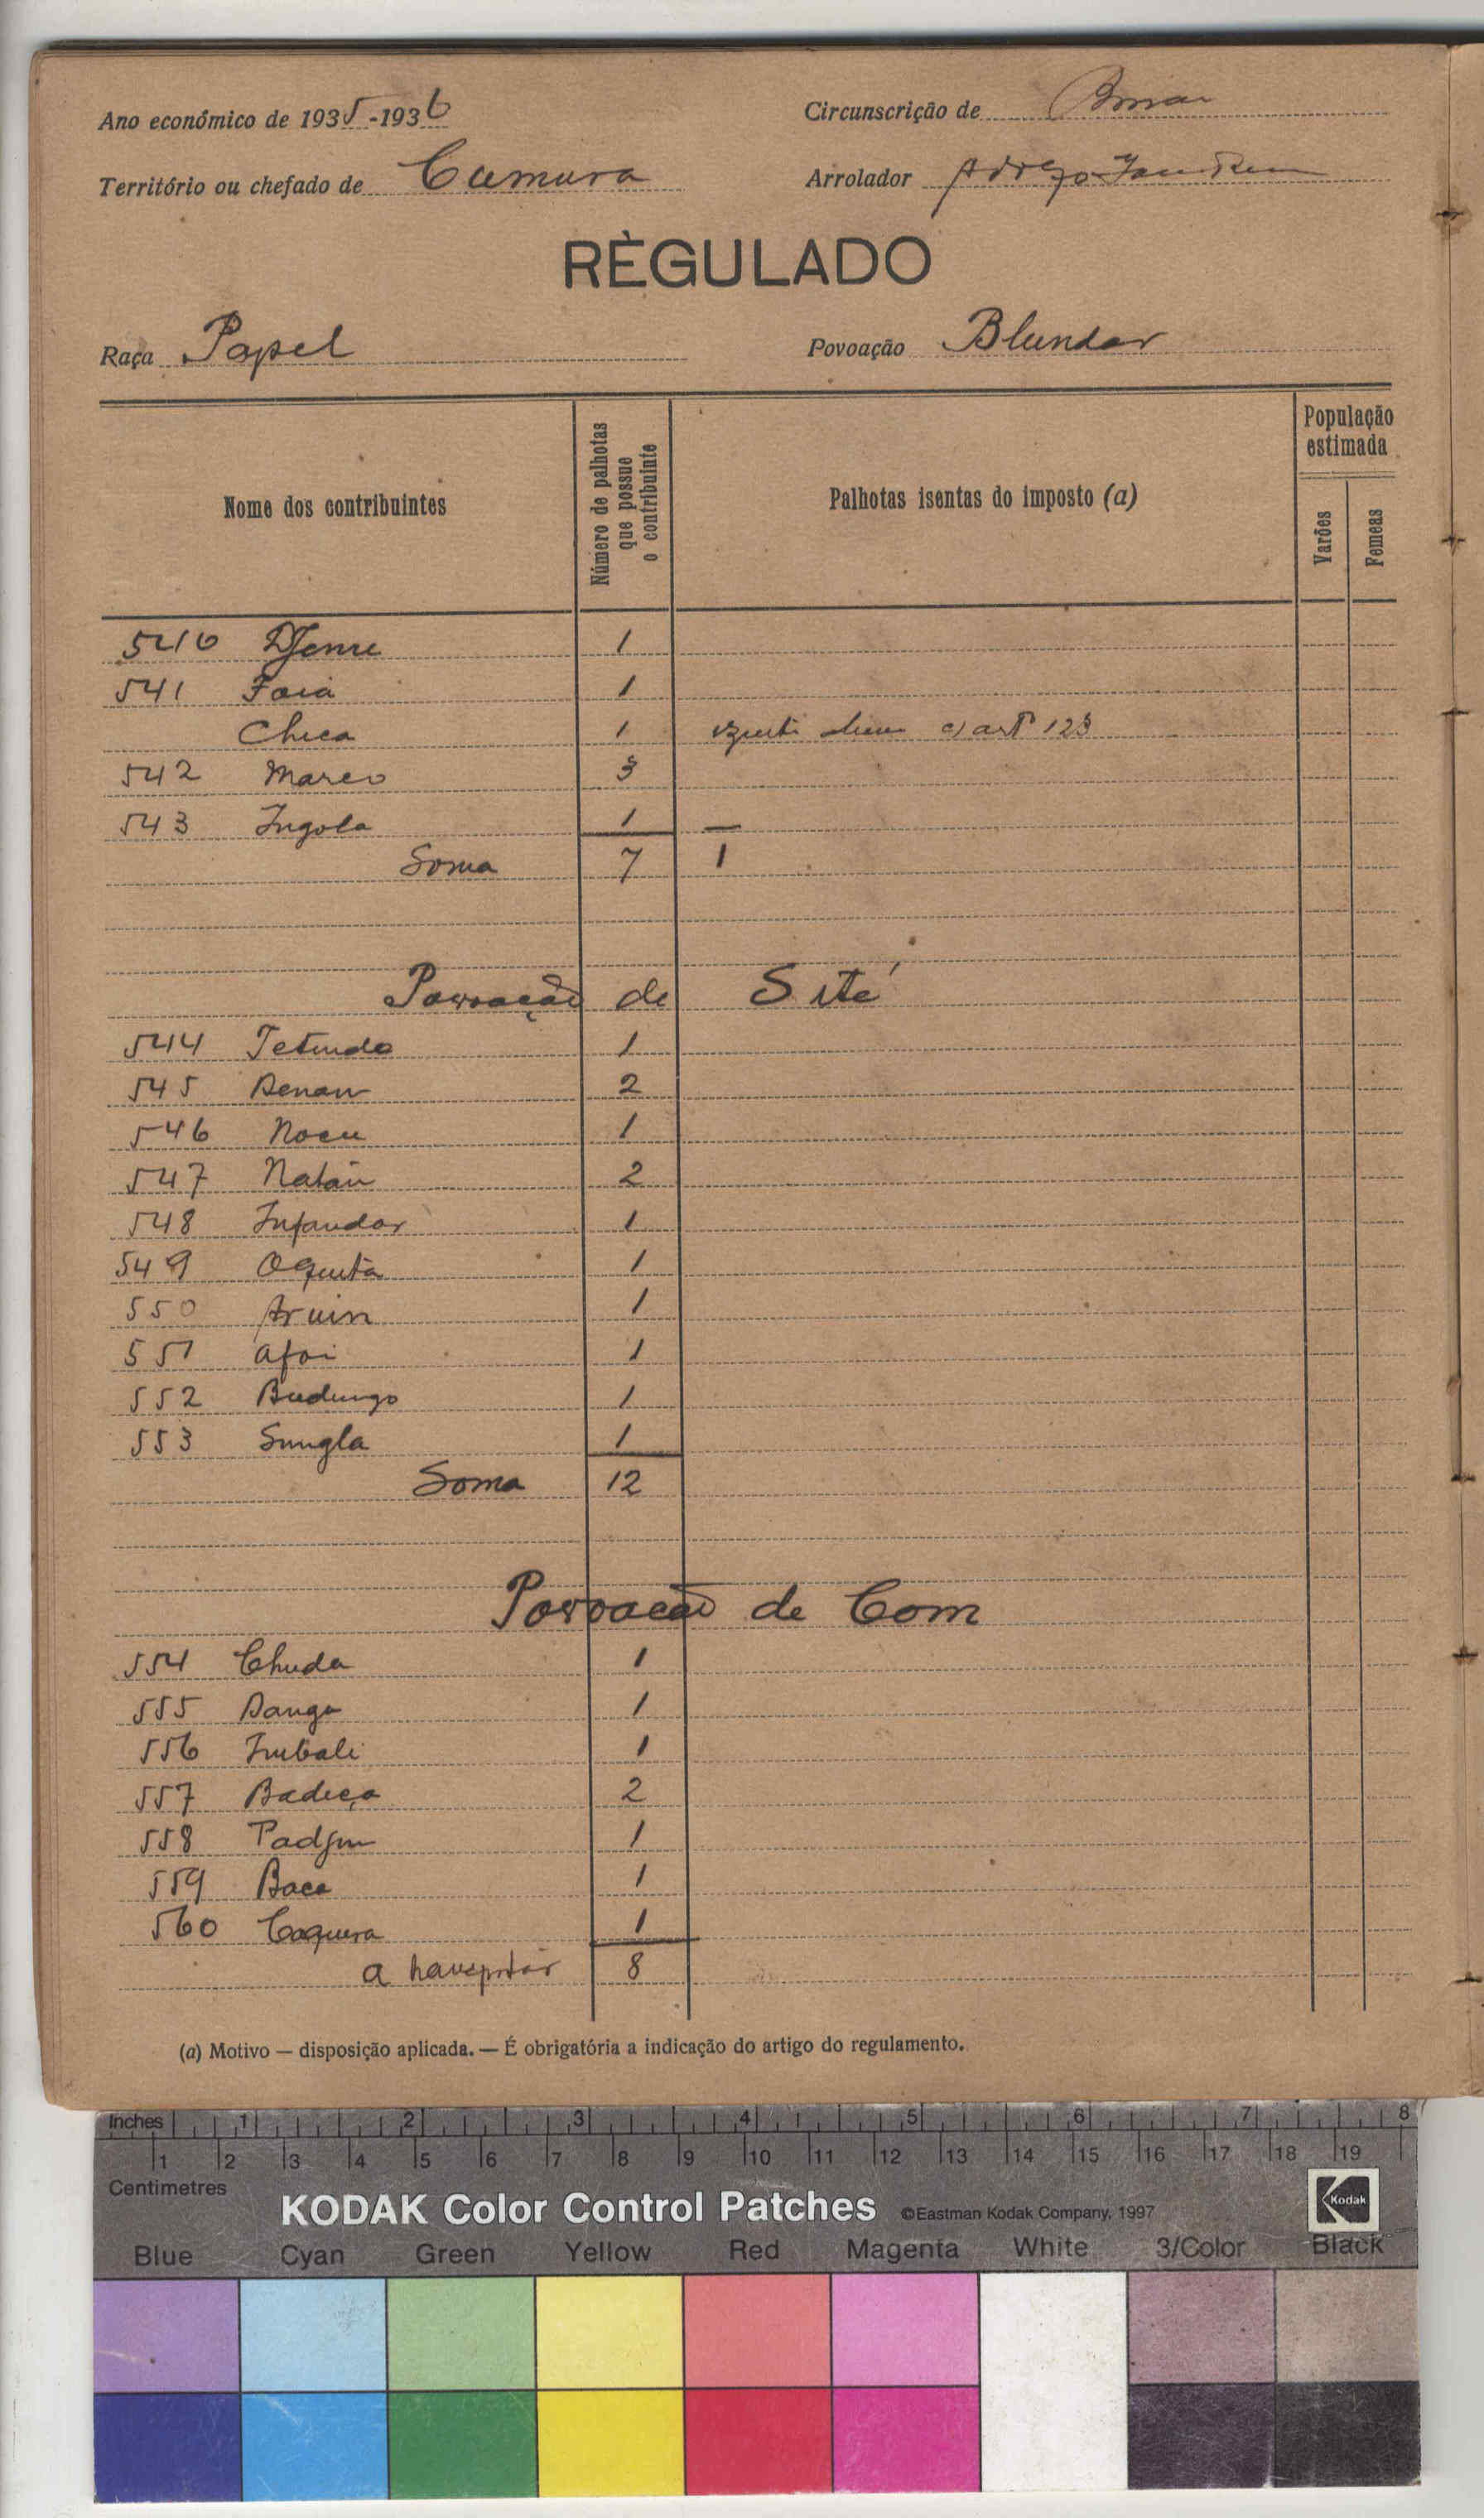 Ano económico de 1935-1936
Circunscrição de
Território ou chefado de Cumura
Arrolador
RÈGULADO
Raça Papel
Povoação Blundar
Nome dos contribuintes
Número de palhotas que possue o contribuinte
Palhotas isentas do imposto (a)
População estimada
Varões
Femeas
540 Djenu 1
541 Faia 1
Chica 1 c) artº 123
542 Marco 3
543 Ingola 1 —
Soma 7 1
Povoação de Sité
544 1
545 Benau 2
546 Nocu 1
547 Natàu 2
548 Infandar 1
549 Oquita 1
550 Aruin 1
551 Afoi 1
552 Budungo 1
553 Sungla 1
Soma 12
Povoação de Com
554 Chuda 1
555 Danga 1
556 Imbali 1
557 Badeça 2
558 1
559 Baca 1
560 Coquera 1
a transportar 8
(a) Motivo — disposição aplicada. — É obrigatória a indicação do artigo do regulamento.
Inches 1 2 3 4 5 6 7 8
1 2 3 4 5 6 7 8 9 10 11 12 13 14 15 16 17 18 19
Centimetres
KODAK Color Control Patches ©Eastman Kodak Company, 1997 Kodak
Blue Cyan Green Yellow Red Magenta White 3/Color Black